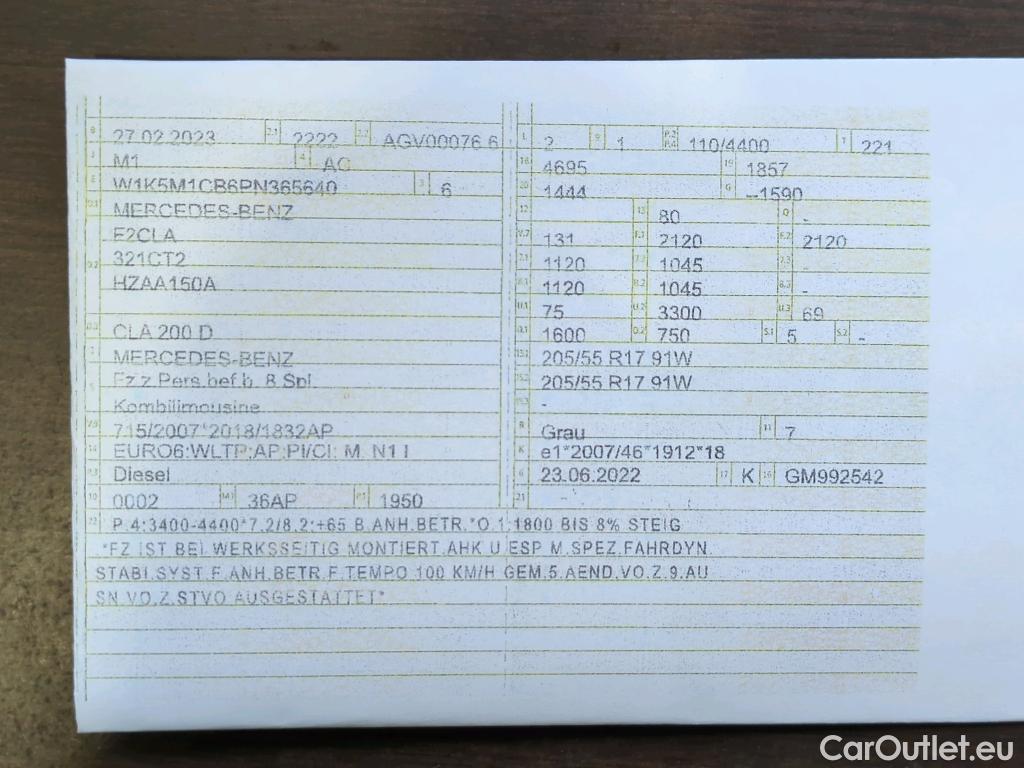 B 27.02.2023 2.1 2222 2.2 AGV00076 6
J M1 4 AC
E W1K5M1CB6PN365640 3 6
D.1 MERCEDES-BENZ
F2CLA
D.2 321CT2
HZAA150A
D.3 CLA 200 D
2 MERCEDES-BENZ
5 Fz.z.Pers.bef.b. 8 Spl.
Kombilimousine
V.9 715/2007*2018/1832AP
14 EURO6;WLTP;AP;PI/CI; M, N1 I
P.3 Diesel
10 0002 14.1 36AP P.1 1950
L 2 9 1 P.2 P.4 110/4400 T 221
18 4695 19 1857
20 1444 G --1590
12 13 80 Q -
V.7 131 F.1 2120 F.2 2120
7.1 1120 7.2 1045 7.3 -
8.1 1120 8.2 1045 8.3 -
U.1 75 U.2 3300 U.3 69
O.1 1600 O.2 750 S.1 5 S.2 -
15.1 205/55 R17 91W
15.2 205/55 R17 91W
15.3 -
R Grau 11 7
K e1*2007/46*1912*18
6 23.06.2022 17 K 16 GM992542
21 -
22 P.4:3400-4400*7.2/8.2:+65 B.ANH.BETR.*O.1:1800 BIS 8% STEIG
*FZ IST BEI WERKSSEITIG MONTIERT.AHK U.ESP M.SPEZ.FAHRDYN.
STABI.SYST.F.ANH.BETR.F.TEMPO 100 KM/H GEM.5.AEND.VO.Z.9.AU
SN.VO.Z.STVO AUSGESTATTET*
CarOutlet.eu